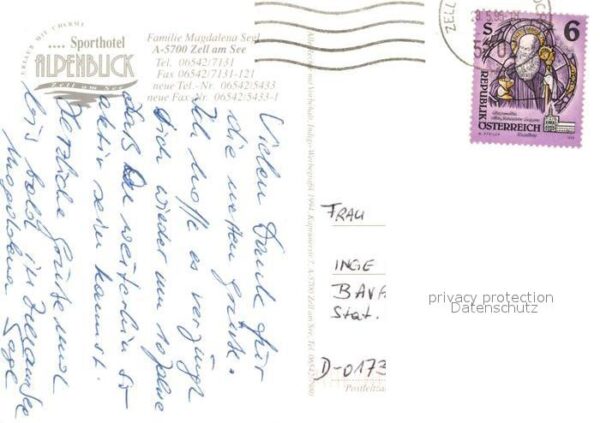 URLAUB MIT CHARME
.... Sporthotel
ALPENBLICK
Zell am See
Familie Magdalena Segl
A-5700 Zell am See
Tel. 06542/7131
Fax 06542/7131-121
neue Tel.-Nr. 06542/5433
neue Fax-Nr. 06542/5433-1
Vielen Dank für
die netten Grüße.
Ich hoffe es verjüngt
Dich wieder um 10 Jahre
daß Du weiterhin so
aktiv sein kannst.
Herzliche Grüße und
bis bald in Zell am See
Magdalena Segl
ZELL
S 6
REPUBLIK
ÖSTERREICH
FRAU
INGE
BAVA
Stat.
D-0173
Postleitzahl
privacy protection
Datenschutz